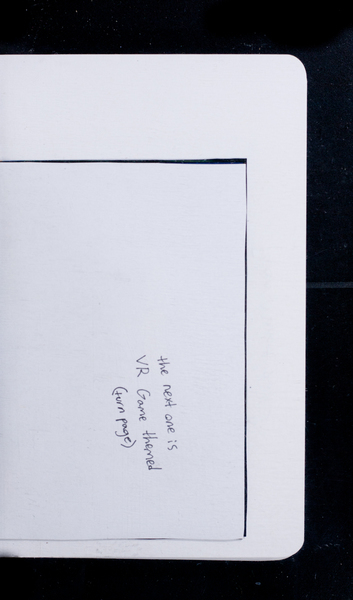 the next one is
VR Game themed
(turn page)